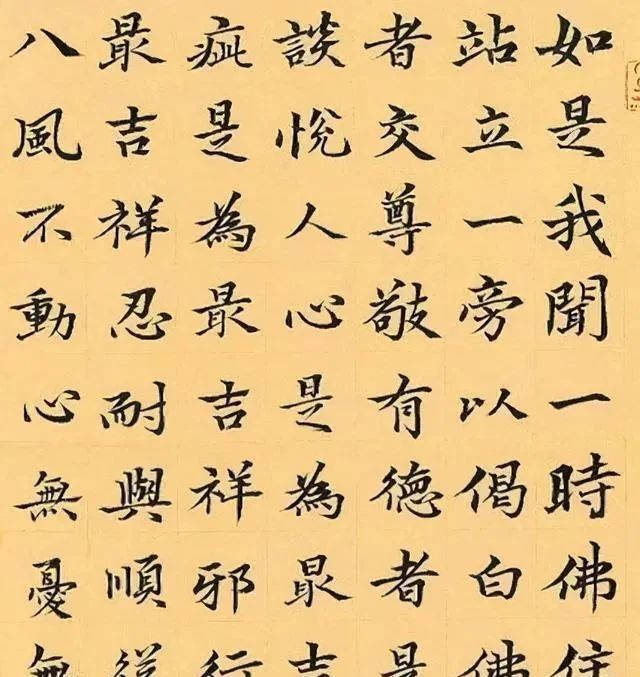 如是我聞一時佛住
站立一旁以偈白佛
者交尊敬有德者是
談悅人心是為最吉
疵是為最吉祥邪行
最吉祥忍耐與順從
八風不動心無憂無